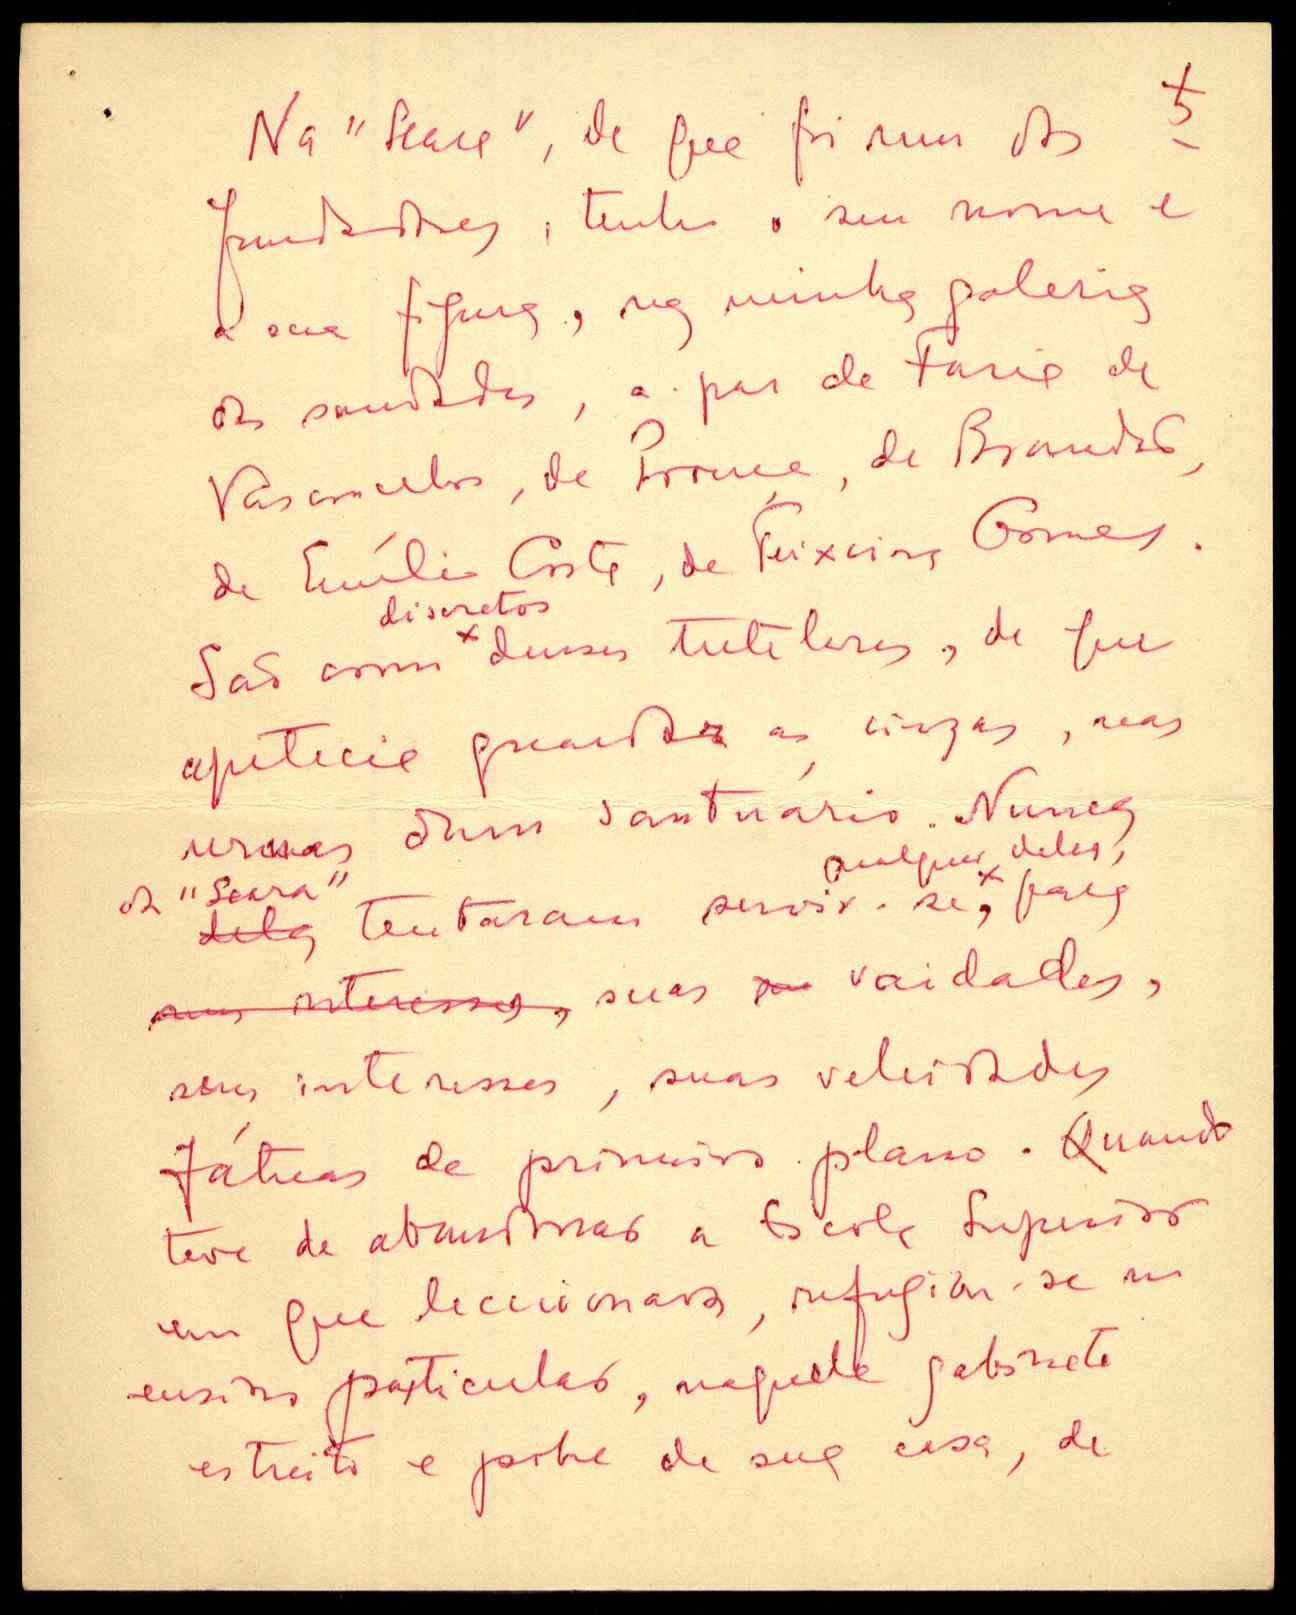 5
Na "Seara", de que foi um dos
fundadores, tenho o seu nome e
a sua figura, na minha galeria
das saudades, a par de Faria de
Vasconcelos, de Proença, de Brandão,
de Emílio Costa, de Teixeira Gomes.
discretos
São como deuses tutelares, de que
apetecia guardar as cinzas, nas
urnas dum santuário. Nunca
qualquer deles,
da "Seara"
dela tentaram servir-se, para
seus interesses, suas vaidades,
seus interesses, suas veleidades
fátuas de primeiro plano. Quando
teve de abandonar a Escola Superior
em que leccionava, refugiou-se no
ensino particular, naquele gabinete
estreito e pobre de sua casa, de